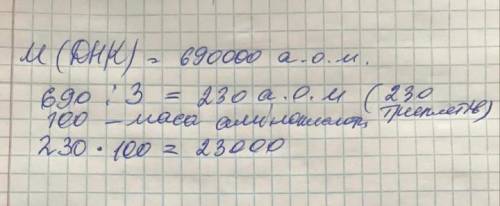 М (ДНК) = 690000 а.о.м.
690 : 3 = 230 а.о.м (230
100 – маса амінокислоти триплетів)
230 · 100 = 23000